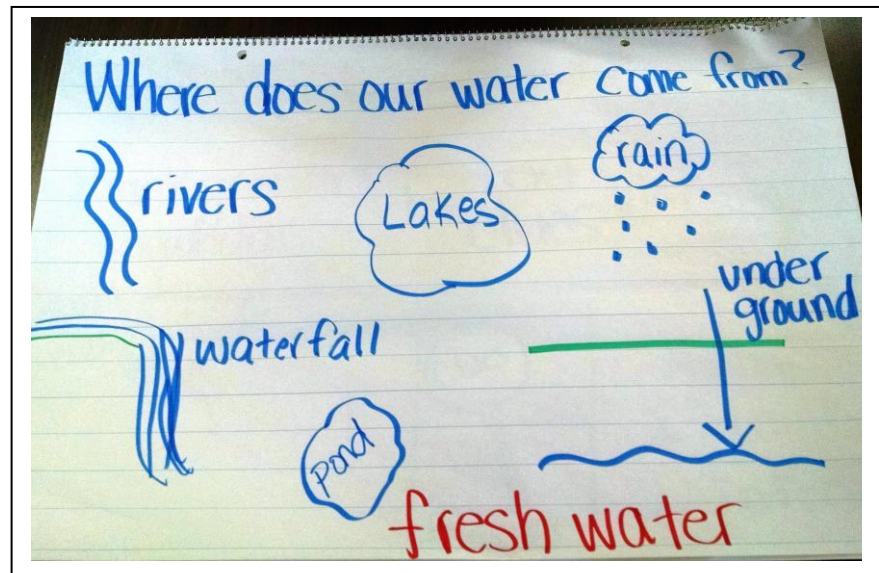 Where does our water come from?
rivers
Lakes
rain
under
ground
waterfall
pond
fresh water